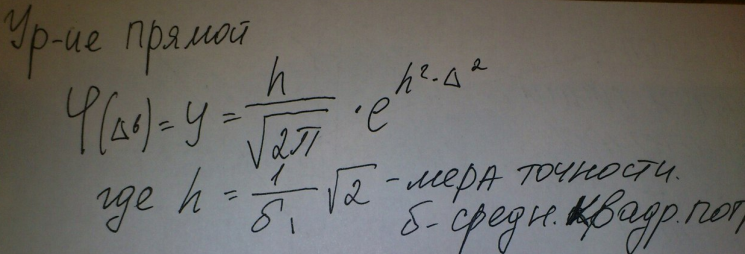 Ур-ие прямой
φ(Δб) = y = h/√2π · e^h²·Δ²
где h = 1/б₁ √2 - мера точности.
б - средн. квадр. пог